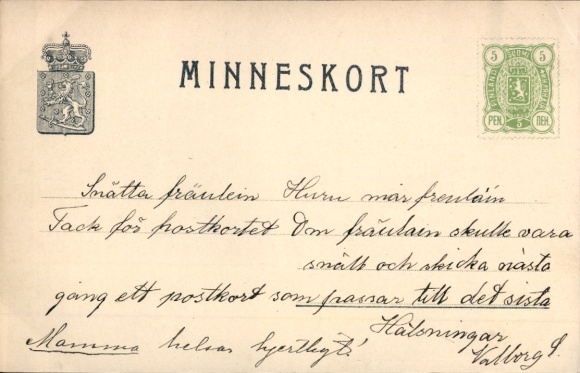 MINNESKORT
5 SUOMI 5
PEN. ПЕН.
5
Snätta fräulein Huru mår freuläin
Tack för postkortet Om fräulain skulle vara
snätt och skicka nästa
gång ett postkort som passar till det sista
Hälsningar
Mamma helsar hjertligt!
Valborg S.